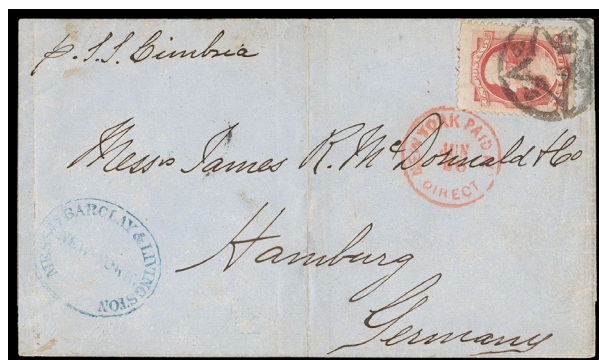 p. S.S. Cimbria
NEW YORK PAID ALL
JUN
DIRECT
Messrs James R. McDonnald & Co
Hamburg
Germany
MESSRS BARCLAY & LIVINGSTON
NEW YORK